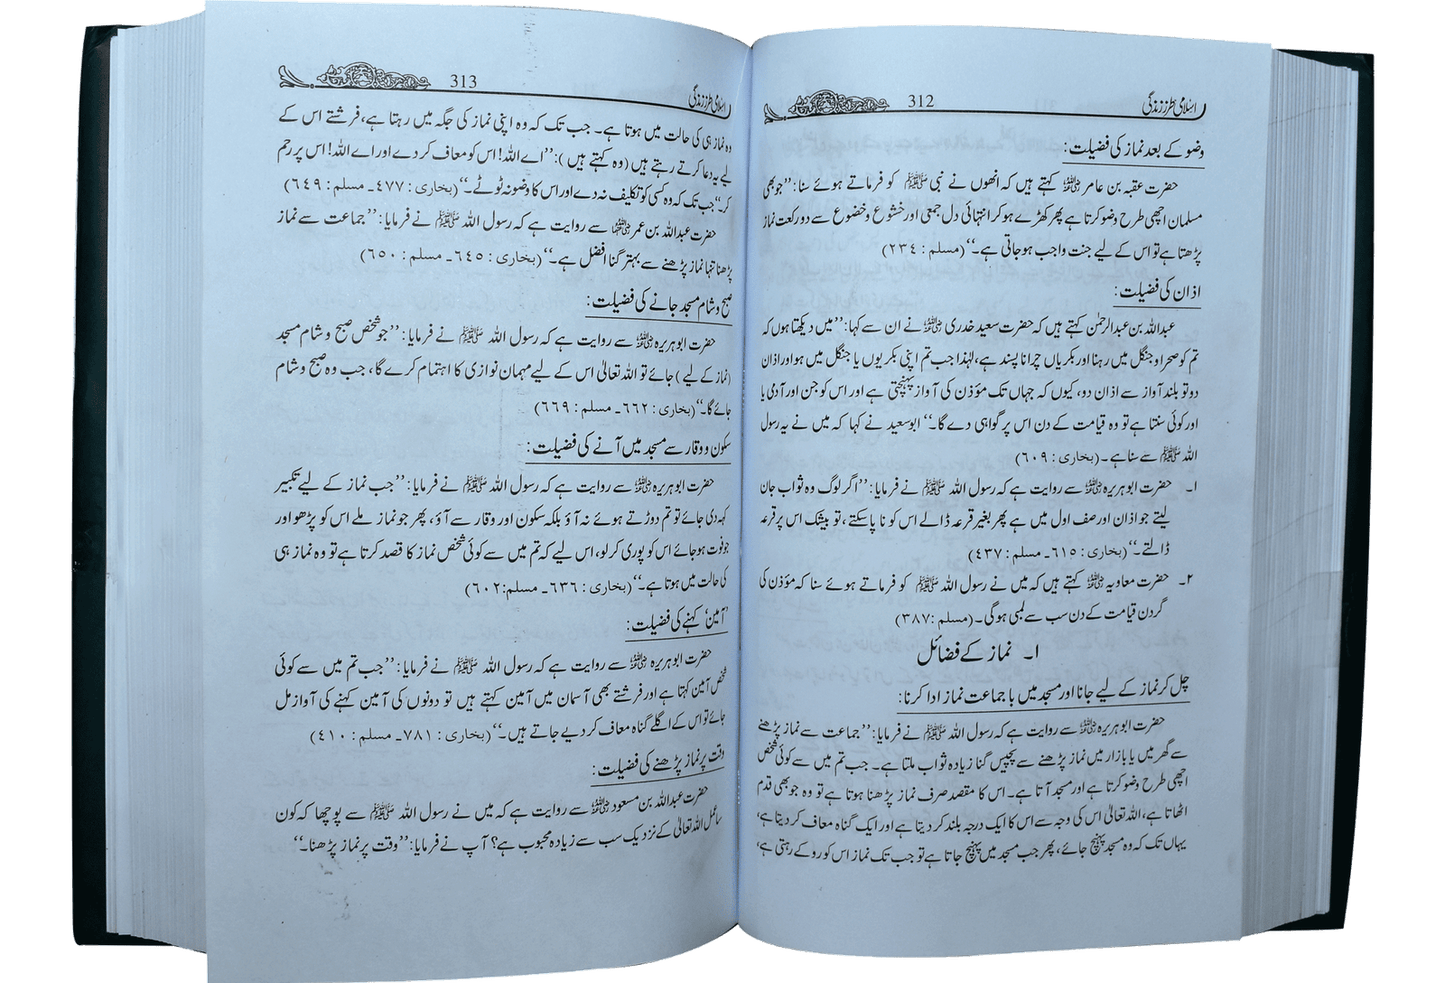 اسلامی طرز زندگی 312
وضو کے بعد نماز کی فضیلت:
حضرت عقبہ بن عامر رضی اللہ عنہ کہتے ہیں کہ انھوں نے نبی ﷺ کو فرماتے ہوئے سنا: ’’جو بھی
مسلمان اچھی طرح وضو کرتا ہے پھر کھڑے ہو کر انتہائی دل جمعی اور خشوع و خضوع سے دو رکعت نماز
پڑھتا ہے تو اس کے لیے جنت واجب ہو جاتی ہے۔‘‘ (مسلم : ۲۳۴)
اذان کی فضیلت:
عبداللہ بن عبدالرحمٰن کہتے ہیں کہ حضرت سعید خدری رضی اللہ عنہ نے ان سے کہا: ’’میں دیکھتا ہوں کہ
تم کو صحرا و جنگل میں رہنا اور بکریاں چرانا پسند ہے، لہٰذا جب تم اپنی بکریوں یا جنگل میں ہو اور اذان
دو تو بلند آواز سے اذان دو، کیوں کہ جہاں تک مؤذن کی آواز پہنچتی ہے اور اس کو جن اور آدمی یا
اور کوئی سنتا ہے تو وہ قیامت کے دن اس پر گواہی دے گا۔‘‘ ابو سعید نے کہا کہ میں نے یہ رسول
اللہ ﷺ سے سنا ہے۔ (بخاری : ۶۰۹)
۱۔ حضرت ابوہریرہ رضی اللہ عنہ سے روایت ہے کہ رسول اللہ ﷺ نے فرمایا: ’’اگر لوگ وہ ثواب جان
لیتے جو اذان اور صف اول میں ہے پھر بغیر قرعہ ڈالے اس کو نا پا سکتے، تو بیشک اس پر قرعہ
ڈالتے۔‘‘ (بخاری : ۶۱۵۔ مسلم : ۴۳۷)
۲۔ حضرت معاویہ رضی اللہ عنہ کہتے ہیں کہ میں نے رسول اللہ ﷺ کو فرماتے ہوئے سنا کہ مؤذن کی
گردن قیامت کے دن سب سے لمبی ہوگی۔ (مسلم :۳۸۷)
۱۔ نماز کے فضائل
چل کر نماز کے لیے جانا اور مسجد میں با جماعت نماز ادا کرنا:
حضرت ابوہریرہ رضی اللہ عنہ سے روایت ہے کہ رسول اللہ ﷺ نے فرمایا: ’’جماعت سے نماز پڑھنے
سے گھر میں یا بازار میں نماز پڑھنے سے پچیس گنا زیادہ ثواب ملتا ہے۔ جب تم میں سے کوئی شخص
اچھی طرح وضو کرتا ہے اور مسجد آتا ہے۔ اس کا مقصد صرف نماز پڑھنا ہوتا ہے تو وہ جو بھی قدم
اٹھاتا ہے، اللہ تعالیٰ اس کی وجہ سے اس کا ایک درجہ بلند کر دیتا ہے اور ایک گناہ معاف کر دیتا ہے،
یہاں تک کہ وہ مسجد پہنچ جائے، پھر جب مسجد میں پہنچ جاتا ہے تو جب تک نماز اس کو روکے رہتی ہے،
اسلامی طرز زندگی 313
وہ نماز ہی کی حالت میں ہوتا ہے۔ جب تک کہ وہ اپنی نماز کی جگہ میں رہتا ہے، فرشتے اس کے
لیے یہ دعا کرتے رہتے ہیں (وہ کہتے ہیں): ’’اے اللہ! اس کو معاف کر دے اور اے اللہ! اس پر رحم
کر‘‘ جب تک کہ وہ کسی کو تکلیف نہ دے اور اس کا وضو نہ ٹوٹے۔‘‘ (بخاری : ۴۷۷۔ مسلم : ۶۴۹)
حضرت عبداللہ بن عمر رضی اللہ عنہما سے روایت ہے کہ رسول اللہ ﷺ نے فرمایا: ’’جماعت سے نماز
پڑھنا تنہا نماز پڑھنے سے بہتر گنا افضل ہے۔‘‘ (بخاری : ۶۴۵۔ مسلم : ۶۵۰)
صبح و شام مسجد جانے کی فضیلت:
حضرت ابوہریرہ رضی اللہ عنہ سے روایت ہے کہ رسول اللہ ﷺ نے فرمایا: ’’جو شخص صبح و شام مسجد
(نماز کے لیے) جائے تو اللہ تعالیٰ اس کے لیے مہمان نوازی کا اہتمام کرے گا، جب وہ صبح و شام
جائے گا۔‘‘ (بخاری : ۶۶۲۔ مسلم : ۶۶۹)
سکون و وقار سے مسجد میں آنے کی فضیلت:
حضرت ابوہریرہ رضی اللہ عنہ سے روایت ہے کہ رسول اللہ ﷺ نے فرمایا: ’’جب نماز کے لیے تکبیر
کہہ دی جائے تو تم دوڑتے ہوئے نہ آؤ بلکہ سکون اور وقار سے آؤ، پھر جو نماز ملے اس کو پڑھو اور
جو فوت ہو جائے اس کو پوری کر لو، اس لیے کہ تم میں سے کوئی شخص نماز کا قصد کرتا ہے تو وہ نماز ہی
کی حالت میں ہوتا ہے۔‘‘ (بخاری : ۶۳۶۔ مسلم:۶۰۲)
’آمین‘ کہنے کی فضیلت:
حضرت ابوہریرہ رضی اللہ عنہ سے روایت ہے کہ رسول اللہ ﷺ نے فرمایا: ’’جب تم میں سے کوئی
شخص آمین کہتا ہے اور فرشتے بھی آسمان میں آمین کہتے ہیں تو دونوں کی آمین کہنے کی آواز مل
جائے تو اس کے اگلے گناہ معاف کر دیے جاتے ہیں۔‘‘ (بخاری : ۷۸۱۔ مسلم : ۴۱۰)
وقت پر نماز پڑھنے کی فضیلت:
حضرت عبداللہ بن مسعود رضی اللہ عنہ سے روایت ہے کہ میں نے رسول اللہ ﷺ سے پوچھا کہ کون
سا عمل اللہ تعالیٰ کے نزدیک سب سے زیادہ محبوب ہے؟ آپ نے فرمایا: ’’وقت پر نماز پڑھنا۔‘‘